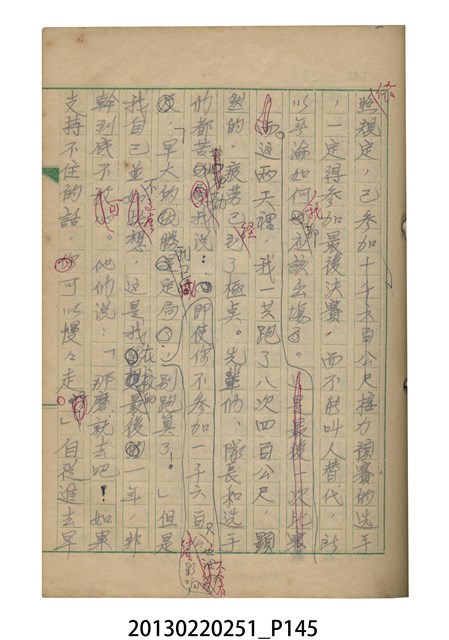 依照規定，已參加千六百公尺接力預賽的選手
，一定得參加最後決賽，而不能叫人替代，所
以無論如何我都應該出場。這是最後一次比賽
這兩天裡，我一共跑了八次四百公尺，顯
然的，疲勞已經到了極點。先輩們、隊長和選手
們都苦勸我說：「即使你不參加一千六百公
早大的勝局別跑算了！」但是
我自己並不這麼想，這是我在校的最後一年，非
幹到底不可。他們說：「那麼就去吧！如果
支持不住的話，可以慢々走」自從進去早
20130220251_P145